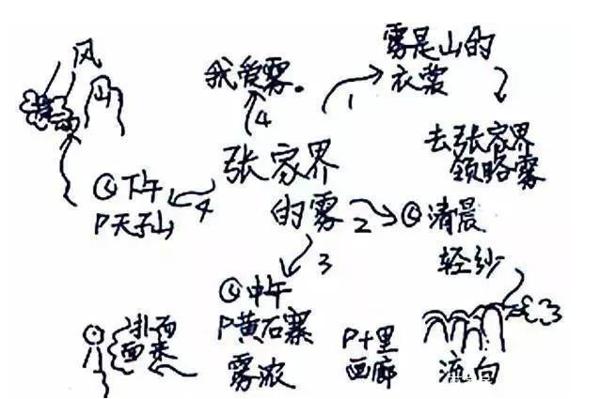 风
山
我爱雾。
4
1
雾是山的
衣裳
去张家界
领略雾
张家界
的雾
下午
P天子山
4
2
清晨
轻纱
3
中午
P黄石寨
雾浓
扑面
而来
P十里
画廊
流向